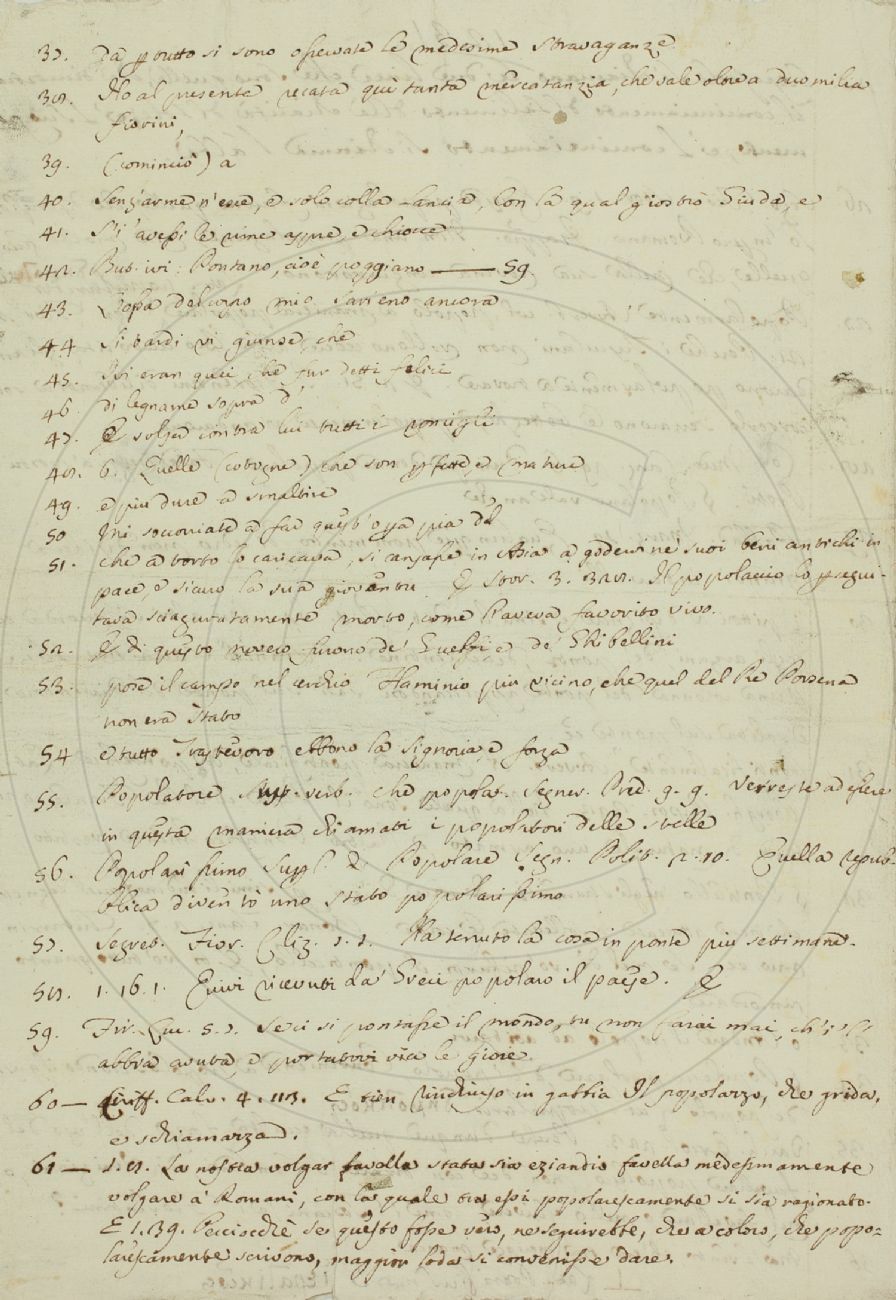 37. da p tutto si sono osservate le medesime stravaganze
38. Ho al presente recata quì tanta mercatanzia, che vale oltre a duomilia
fiorini,
39. (cominciò) a
40. Senz'arme n'esce, e solo colla lancia, Con la qual giostrò Giuda, e
41. S'i' avessi le rime aspre, e chiocce
42. But. ivi: Pontano, cioè poggiano —— 59.
43. Popol del regno mio sarieno ancora
44 Sì tardi vi giunse, che
45. Ivi eran quei, che fur detti felici
46 di legname sopra d'
47. E volse contra lui tutti i roncigli
48. 6. Quelle (cotogne) che son pfette, e mature
49. e piu dure a smaltire
50 Mi soccorriate a far quest'opa pia di
51. che a torto lo caricava, si cansasse in Asia a godersi ne' suoi beni antichi in
pace, e sicuro la sua gioventu. E Stor. 3. 328. Il popolaccio lo psegui-
tava sciaguratamente morto, come l'aveva favorito vivo.
52. E di questo novero furono de' Guelfi, e de' Ghibellini
53. pose il campo nel cerchio Flaminio piu vicino, che quel del Re Porsena
non era stato
54 e tutto Trastevero ebbono la signoria, e forza
55. Popolatore verb. che popola. Segner. Pred. 9. 9. Verreste ad essere
in questa maniera chiamati i popolatori delle stelle
56. Popolarissimo Suppl. di Popolare Segn. Polit. 2. 10. Quella repub-
blica diventò uno stato popolarissimo
57. Segret. Fior. Cliz. 1. 1. Ha tenuto la cosa in ponte piu settimane.
58. 1. 16. 1. Quivi ricevuti da' Greci popolaro il paese. E
59. Fir. Luc. 5. 7. Se ci si pontasse il mondo, tu non farai mai, ch'i'
abbia avuta, e portativi via le gioie.
60— Ciriff. Calv. 4. 113. E tien rinchiuso in gabbia Il popolazzo, che grida,
e schiamazza.
61— 1. 8. La nostra volgar favella stata sia eziandio favella medesimamente
volgare a' Romani, con la quale tra essi popolarescamente si sia ragionato.
E 1. 39. Perciocchè se questo fosse vero, ne seguirebbe, che a coloro, che popo=
larescamente scrivono, maggior loda si convenisse dare.